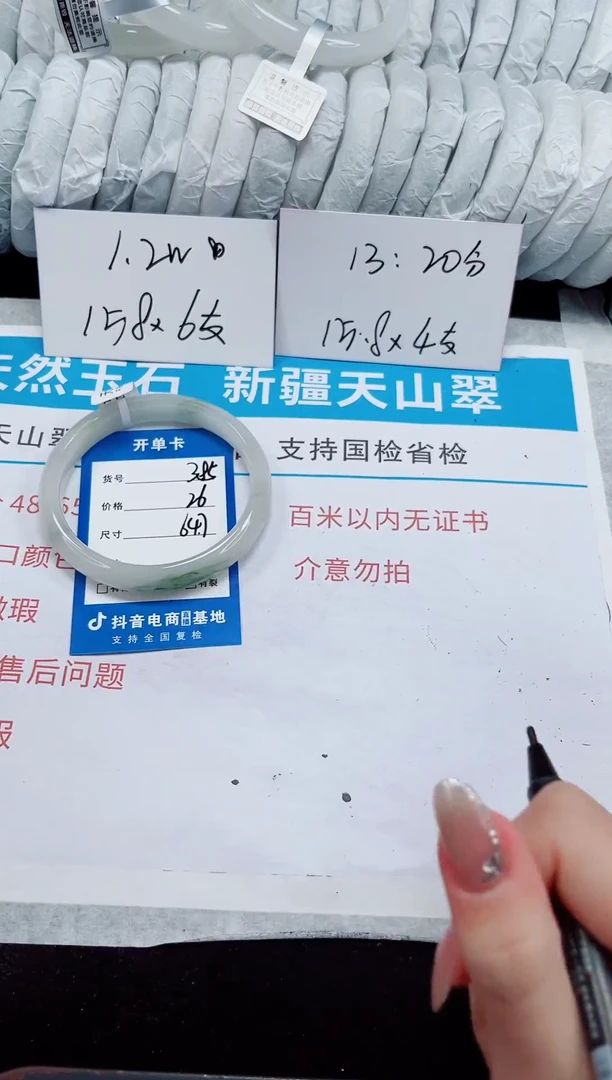 1.2w
158×6支
13:20分
15.8×4支
天然玉石 新疆天山翠
天山翠
支持国检省检
开单卡
货号 385
价格 26
尺寸
百米以内无证书
介意勿拍
口颜色
瑕
售后问题
抖音电商直播基地
支持全国复检